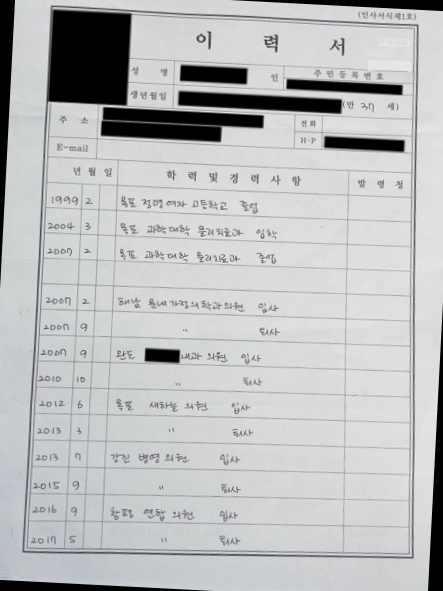 (인사서식제1호)
이 력 서
성 명 인 주민등록번호
생년월일 (만 37 세)
주 소 전화
H·P
E-mail
년 월 일 학력및경력사항 발령청
1999 2 목포 정명여자 고등학교 졸업
2004 3 목포 과학대학 물리치료과 입학
2007 2 목포 과학대학 물리치료과 졸업
2007 2 해남 문내가정의학과의원 입사
2007 9 〃 퇴사
2007 9 완도 내과 의원 입사
2010 10 〃 퇴사
2012 6 목포 새하늘 의원 입사
2013 3 〃 퇴사
2013 7 강진 병영 의원 입사
2015 9 〃 퇴사
2016 9 함평 연합 의원 입사
2017 5 〃 퇴사